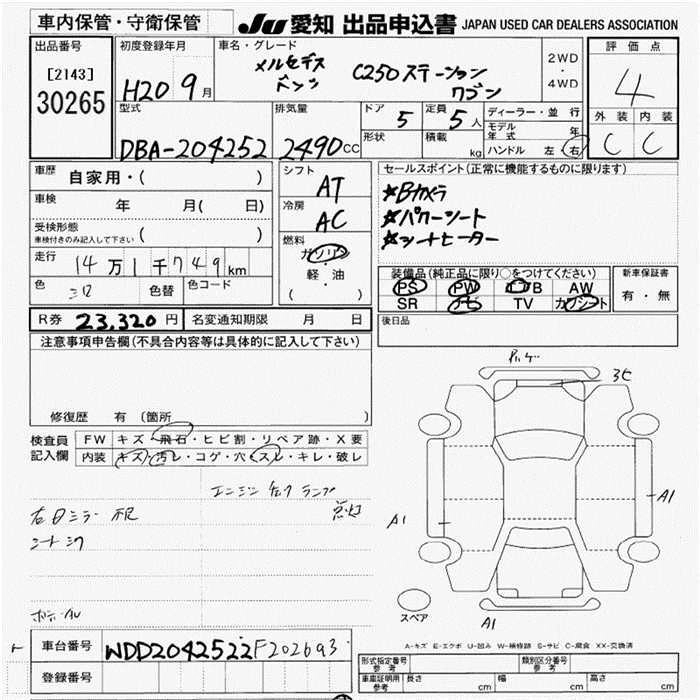 車内保管・守衛保管
JU 愛知 出品申込書 JAPAN USED CAR DEALERS ASSOCIATION
出品番号
[2143]
30265
初度登録年月
H20 9月
車名・グレード
メルセデス
ベンツ
C250ステーション
ワゴン
2WD
・
4WD
評価点
4
外装 内装
C C
型式
DBA-204252
排気量
2490cc
ドア 5
定員 5人
形状
積載 kg
ディーラー・並行
モデル年式 年
ハンドル 左・右
車歴 自家用・( )
車検 年 月( 日)
受検形態
車検付きのみ記入して下さい ( )
走行 14万1千749km
色 色替 色コード
シフト AT
冷房 AC
燃料
ガソリン
軽・油
( )
セールスポイント(正常に機能するものに限ります)
★Bカメラ
★パワーシート
★シートヒーター
装備品(純正品に限り○をつけてください)
PS PW B AW
SR ナビ TV カワシート
新車保証書
有・無
後日品
R券 23,320円 名変通知期限 月 日
注意事項申告欄(不具合内容等は具体的に記入して下さい)
修復歴 有(箇所 )
検査員
記入欄
FW キズ・飛石・ヒビ割・リペア跡・X要
内装 キズ・汚レ・コゲ・穴・スレ・キレ・破レ
エンジンチェックランプ
右ドミラー
シートシワ
A1
A1
A1
スペア
A-キズ E-エクボ U-凹み W-補修跡 S-サビ C-腐食 XX-交換済
車台番号 WDD2042522F202693
登録番号
形式指定番号
参考
類別区分番号
参考
車庫証明用
参考
長さ cm 幅 cm 高さ cm